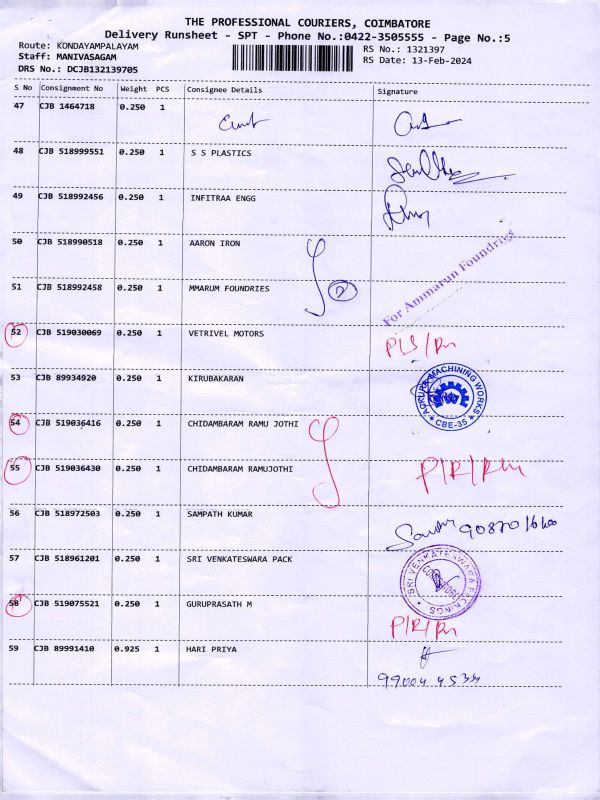 THE PROFESSIONAL COURIERS, COIMBATORE
Delivery Runsheet - SPT - Phone No.:0422-3505555 - Page No.:5
Route: KONDAYAMPALAYAM
RS No.: 1321397
Staff: MANIVASAGAM
RS Date: 13-Feb-2024
DRS No.: DCJB132139705
S No Consignment No Weight PCS Consignee Details Signature
47 CJB 1464718 0.250 1
48 CJB 518999551 0.250 1 S S PLASTICS
49 CJB 518992456 0.250 1 INFITRAA ENGG
50 CJB 518990518 0.250 1 AARON IRON
51 CJB 518992458 0.250 1 MMARUN FOUNDRIES 2 For Ammarun Foundries
52 CJB 519030069 0.250 1 VETRIVEL MOTORS
53 CJB 89934920 0.250 1 KIRUBAKARAN MACHINING WORKS CBE-35
54 CJB 519036416 0.250 1 CHIDAMBARAM RAMU JOTHI
55 CJB 519036430 0.250 1 CHIDAMBARAM RAMUJOTHI
56 CJB 518972503 0.250 1 SAMPATH KUMAR
57 CJB 518961201 0.250 1 SRI VENKATESWARA PACK SRI VENKATESWARA PACKINGS
58 CJB 519075521 0.250 1 GURUPRASATH M
59 CJB 89991410 0.925 1 HARI PRIYA
99004 4534